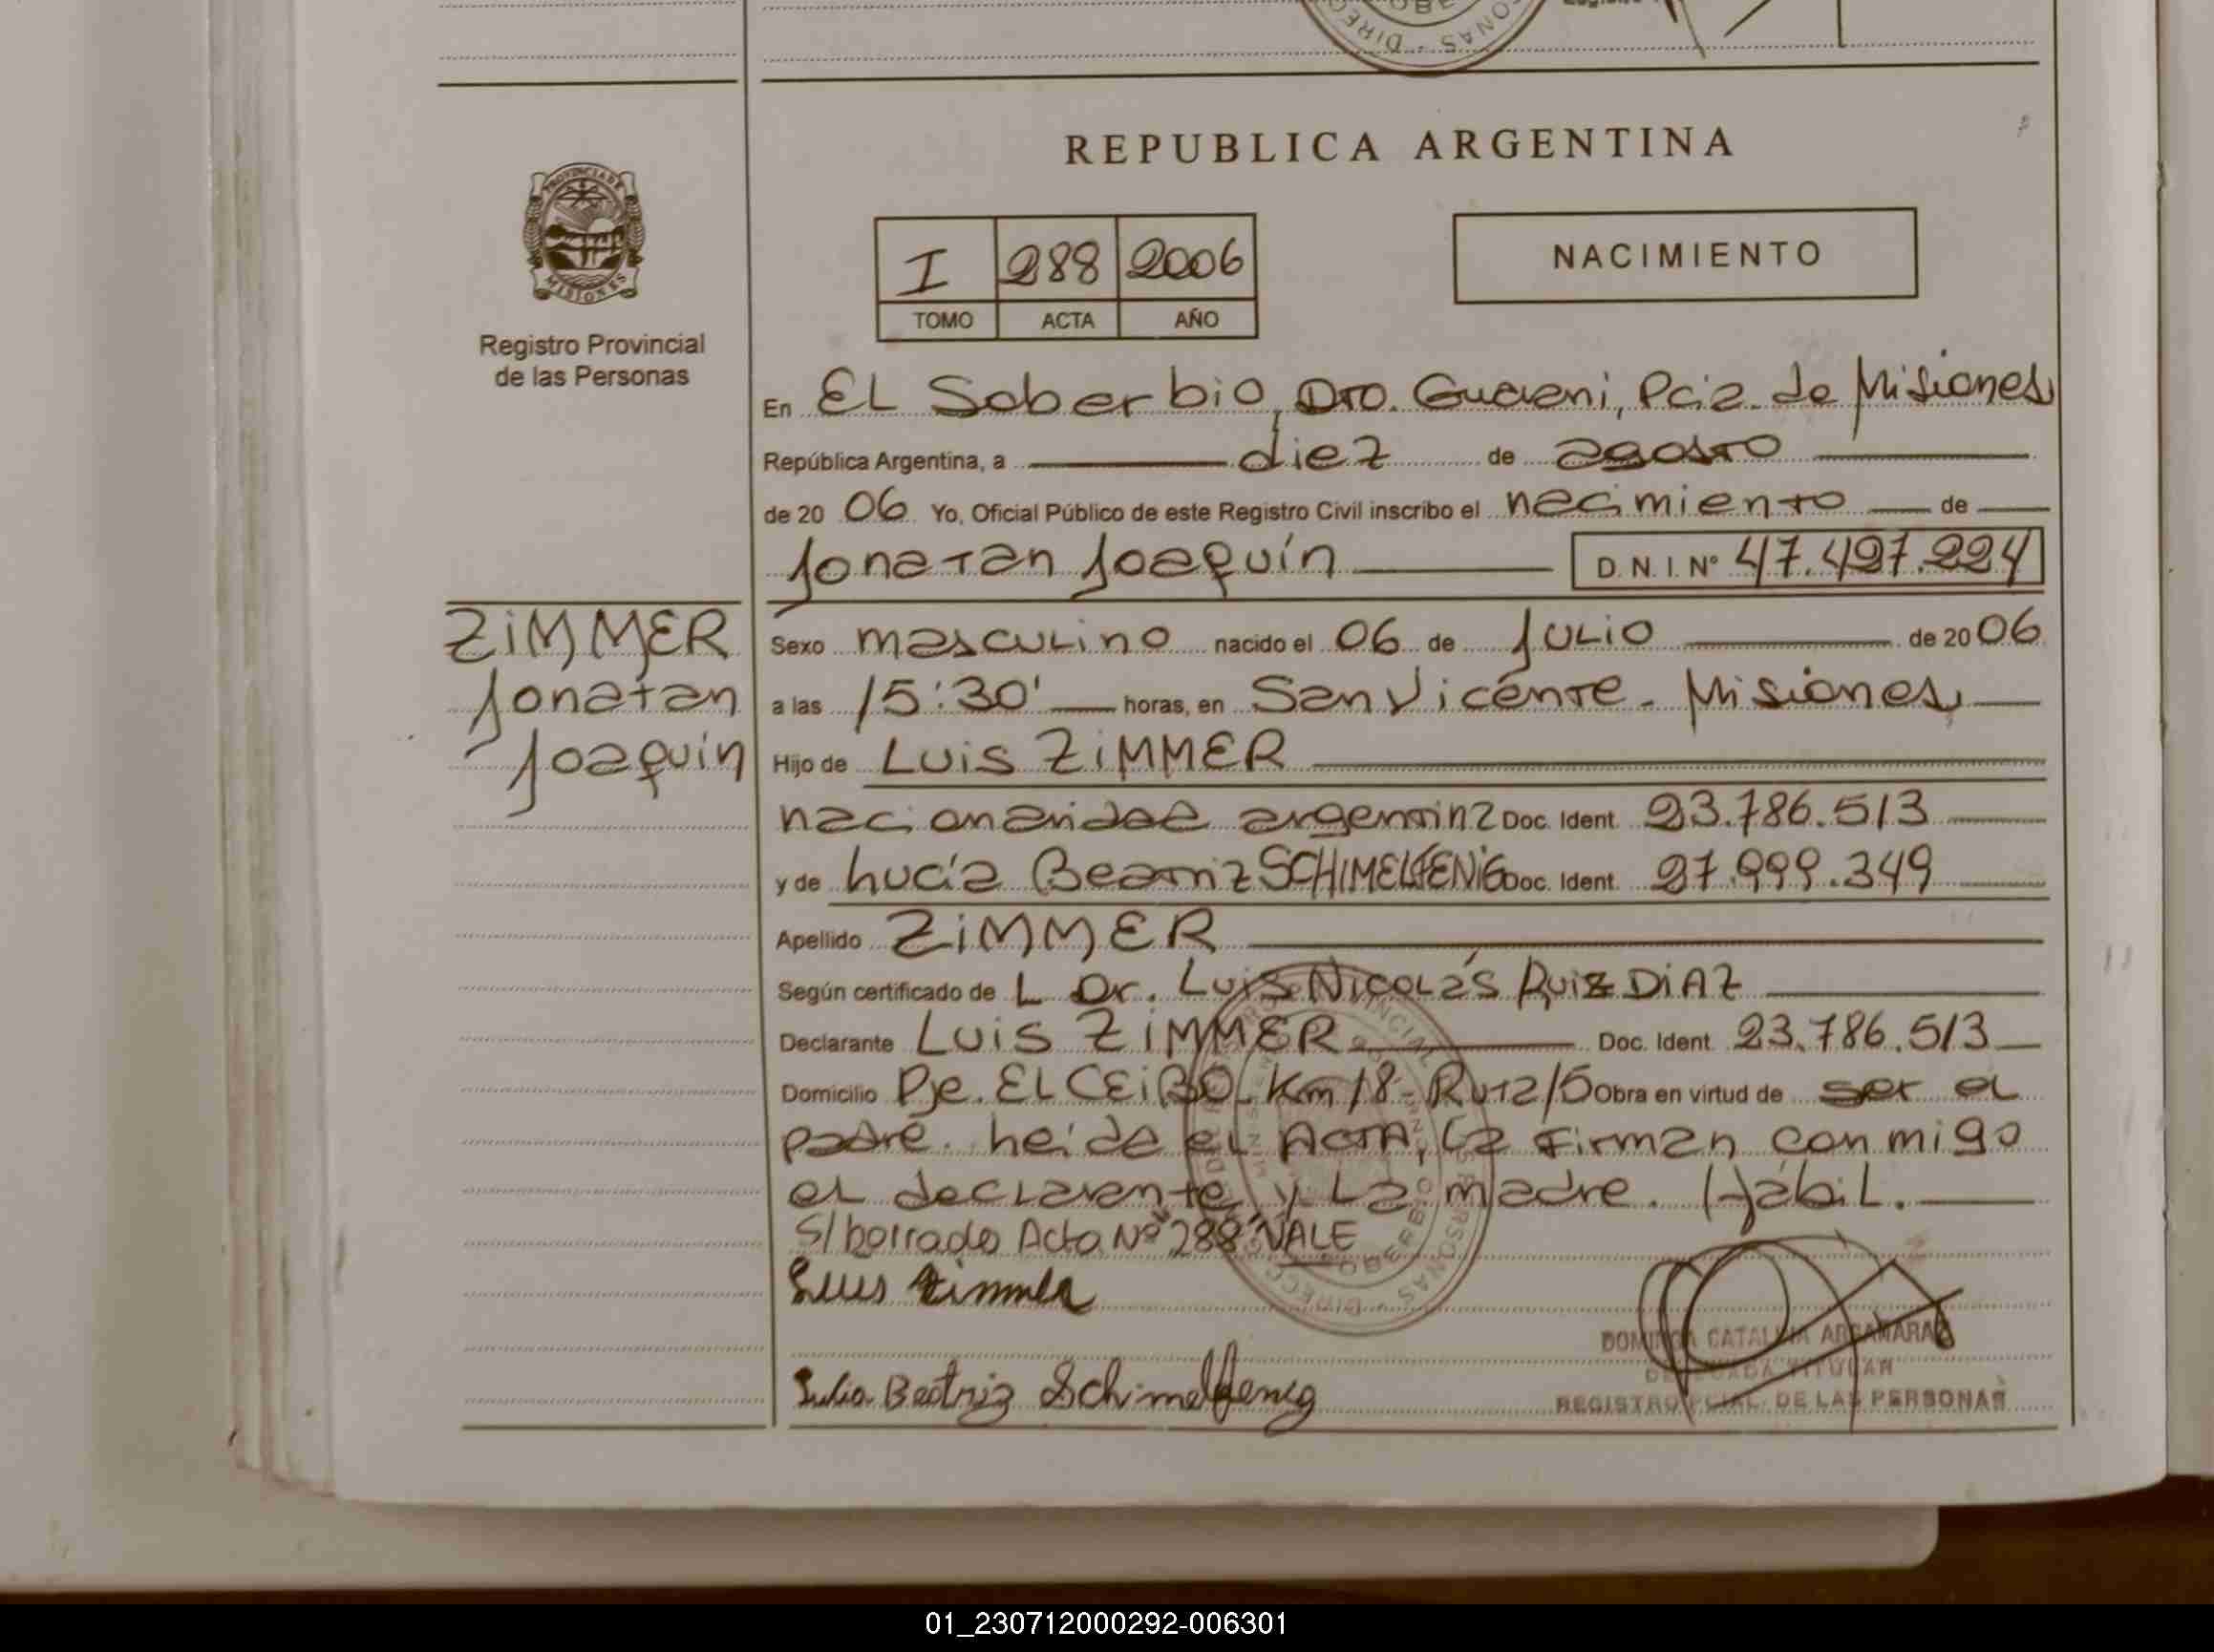 REPUBLICA ARGENTINA
PROVINCIA DE
MISIONES
Registro Provincial
de las Personas
I 288 2006
TOMO ACTA AÑO
NACIMIENTO
En EL Soberbio, Dto. Guarani, Pcia. de Misiones
República Argentina, a diez de agosto
de 20 06 Yo, Oficial Público de este Registro Civil inscribo el nacimiento de
Jonatan Joaquín D.N.I. Nº 47.497.224
ZiMMER
Jonatan
Joaquín
Sexo masculino nacido el 06 de Julio de 20 06
a las 15:30' horas, en San Vicente - Misiones
Hijo de Luis ZiMMER
nacionalidad argentina Doc. Ident. 23.786.513
y de Lucía Beatriz SCHIMELFENiG Doc. Ident. 27.999.349
Apellido ZiMMER
Según certificado de L Dr. Luis Nicolás Ruiz DiAZ
Declarante Luis ZiMMER Doc. Ident. 23.786.513
Domicilio Pje. EL CEiBO - Km 18 - Ruta 15 Obra en virtud de ser el
padre. Leída el ACTA, la firman conmigo
el declarante y la madre. Hábil.
S/ borrado Acta Nº "288" VALE
Luis Zimmer
Beatriz Schimelfenig
DOMINGA CATALINA ARGAÑARAZ
DELEGADA TITULAR
REGISTRO PCIAL. DE LAS PERSONAS
01_230712000292-006301